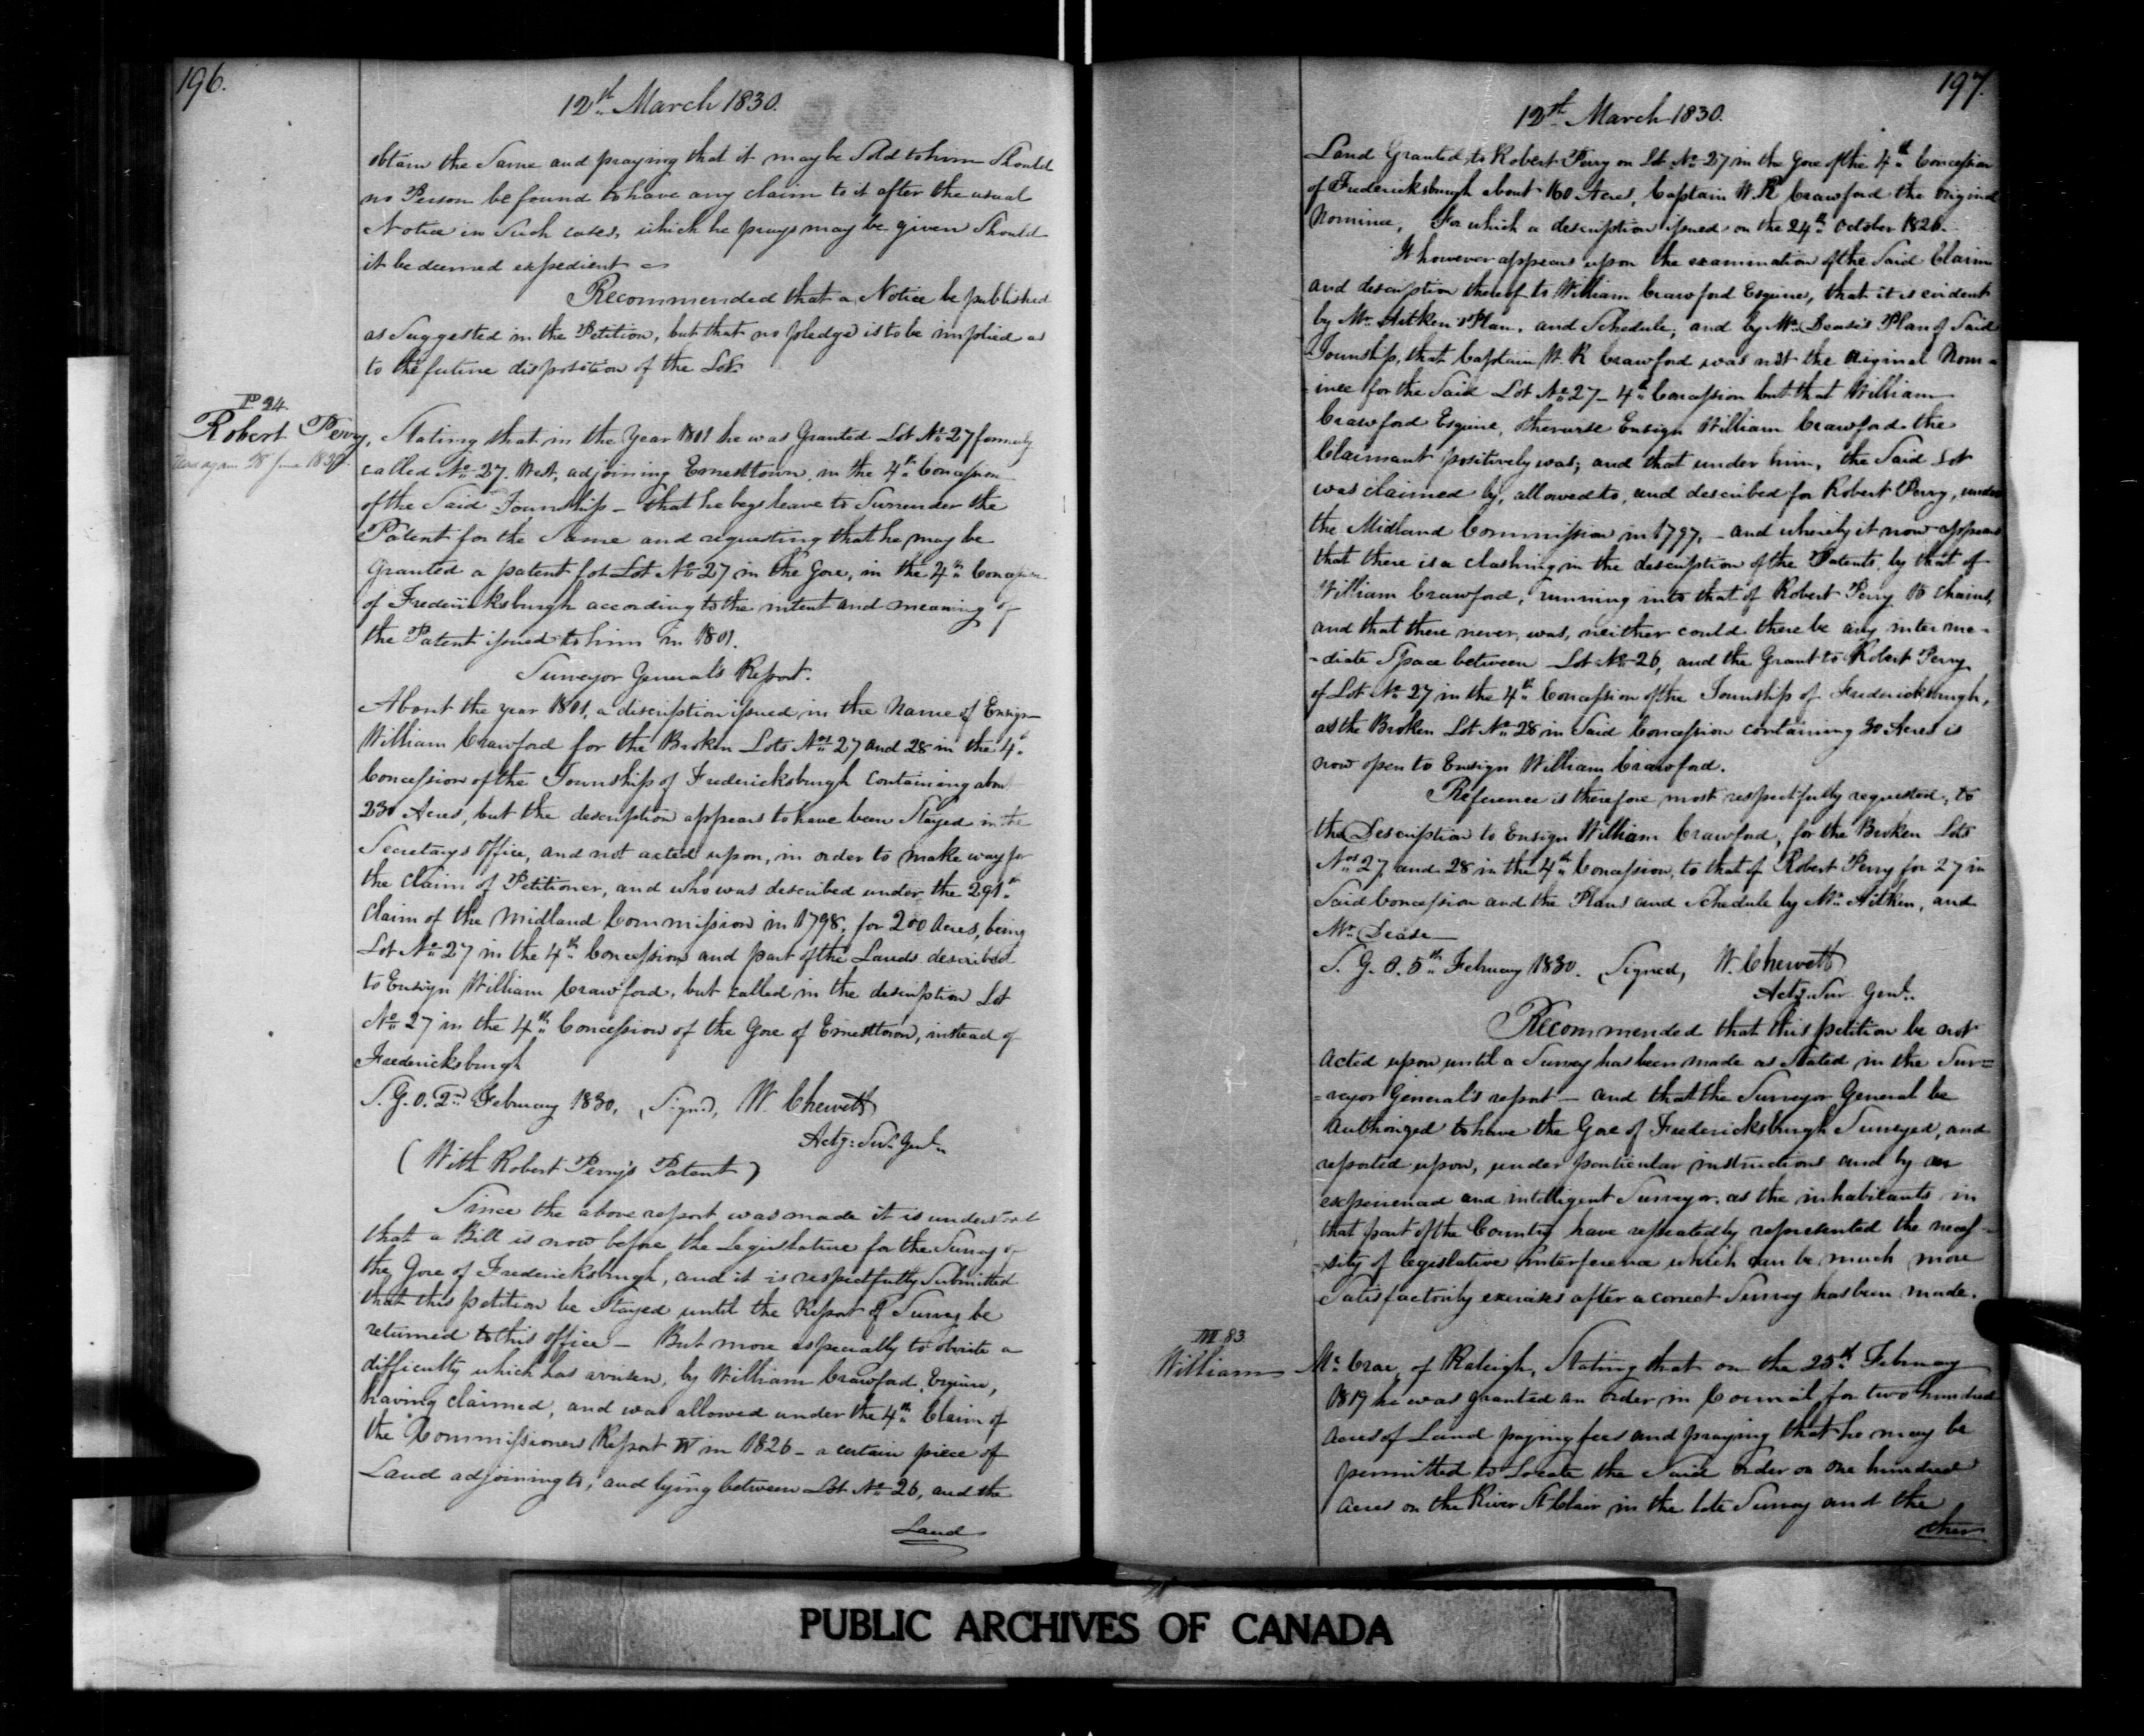 196.
12th March 1830.
obtain the Same and praying that it may be Sold to him Should
no Person be found to have any claim to it after the usual
Notice in Such cases, which he prays may be given Should
it be deemed expedient
Recommended that a Notice be published
as Suggested in the Petition, but that no pledge is to be implied as
to the future disposition of the Lot.
P 24
Robert Perry, Stating that in the Year 1801 he was Granted Lot No 27 formerly
called No 27. West, adjoining Ernesttown, in the 4th Concession
of the Said Township – that he begs leave to Surrender the
Patent for the Same and requesting that he may be
Granted a patent for Lot No 27 in the Gore, in the 4th Concession
of Fredericksburgh according to the intent and meaning of
the Patent issued to him in 1801.
Surveyor General's Report.
About the year 1801, a discription issued in the Name of Ensign
William Crawford for the Broken Lots Nos 27 and 28 in the 4th
Concession of the Township of Fredericksburgh Containing about
230 Acres, but the description appears to have been Stayed in the
Secretarys Office, and not acted upon, in order to make way for
the Claim of Petitioner, and who was described under the 291st
Claim of the Midland Commission in 1798, for 200 Acres, being
Lot No 27 in the 4th Concession and part of the Lands described
to Ensign William Crawford, but called in the description Lot
No 27 in the 4th Concession of the Gore of Ernesttown, instead of
Fredericksburgh
S. G. O. 2nd February 1830, Signed, W. Chewett
Actg: Sur. Genl.
(With Robert Perry's Patent)
Since the above report was made it is understood
that a Bill is now before the Legislature for the Survey of
the Gore of Fredericksburgh, and it is respectfully Submitted
that this petition be Stayed until the Report of Survey be
returned to this office – But more especially to obviate a
difficulty which has arisen, by William Crawford, Esquire,
having claimed, and was allowed under the 4th Claim of
the Commissioners Report in 1826 – a certain piece of
Land adjoining to, and lying between Lot No 26, and the
Land
197.
12th March 1830.
Land Granted to Robert Perry on Lot No 27 in the Gore of the 4th Concession
of Fredericksburgh about 160 Acres, Captain W. R Crawford the Original
Nominee, For which a description issued on the 24th October 1826.
It however appears upon the examination of the Said Claim
and description thereof to William Crawford Esquire, that it is evident
by Mr Aitken's Plan, and Schedule, and by Mr Dease's Plan of Said
Township, that Captain W. R Crawford was not the Original Nom-
inee for the Said Lot No 27 – 4th Concession but that William
Crawford Esquire, otherwise Ensign William Crawford the
Claimant positively was; and that under him, the Said Lot
was claimed by, allowed to, and described for Robert Perry, under
the Midland Commission in 1797, – and whereby it now appears
that there is a clashing in the description of the Patents, by that of
William Crawford, running into that of Robert Perry 10 chains,
and that there never, was, neither could there be any interme-
-diate Space between Lot No 26, and the Grant to Robert Perry
of Lot No 27 in the 4th Concession of the Township of Fredericksburgh,
as the Broken Lot No 28 in Said Concession containing 30 Acres is
now open to Ensign William Crawford.
Reference is therefore most respectfully requested, to
the Description to Ensign William Crawford, for the Broken Lots
Nos 27 and 28 in the 4th Concession, to that of Robert Perry for 27 in
Said Concession and the Plans and Schedule by Mr Aitken, and
Mr Dease
S. G. O. 5th February 1830. Signed, W. Chewett
Actg Sur. Genl.
Recommended that this petition be not
acted upon until a Survey has been made as Stated in the Sur=
=veyor General's report – and that the Surveyor General be
Authorized to have the Gore of Fredericksburgh Surveyed, and
reported upon, under particular instructions and by an
experienced and intelligent Surveyor, as the inhabitants in
that part of the Country have repeatedly represented the neces-
-sity of legislative interference which can be much more
Satisfactorily exercised after a correct Survey has been made.
M 83.
William McCrae, of Raleigh, Stating that on the 25th February
1819 he was granted an order in Council for two hundred
acres of Land paying fees and praying that he may be
permitted to Locate the Said order on one hundred
acres on the River St Clair in the late Survey and the
other
PUBLIC ARCHIVES OF CANADA